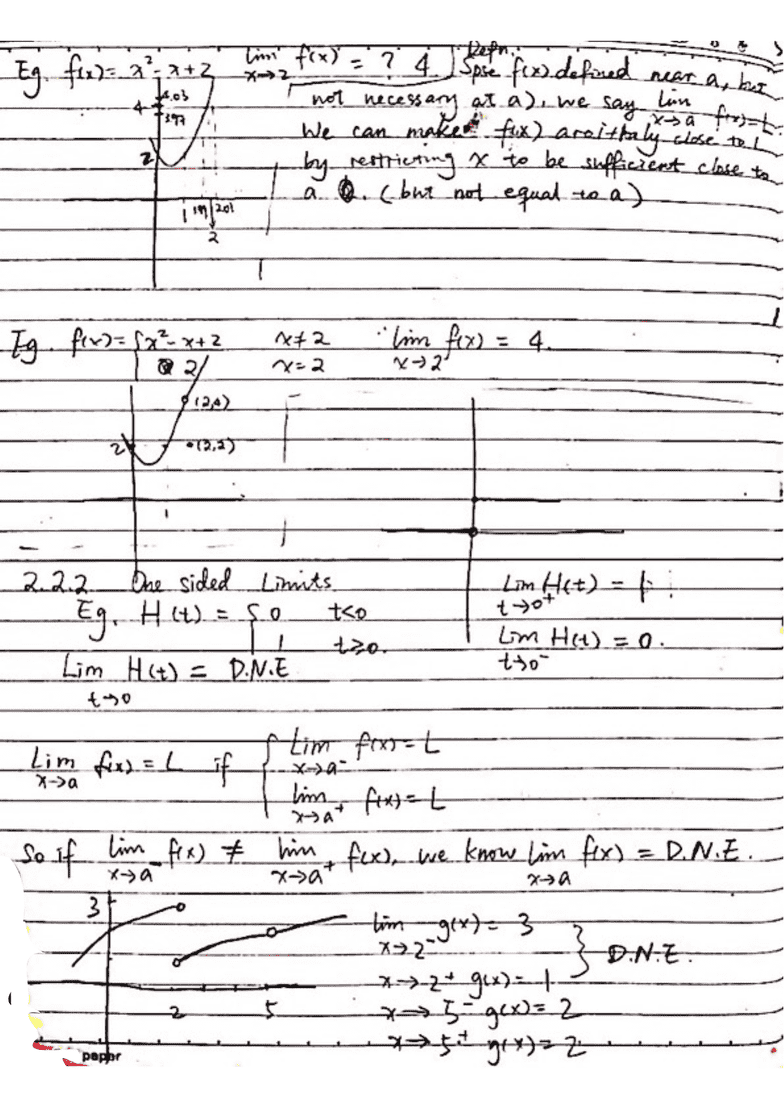 Eg. f(x) = x² - x + 2   lim x→2 f(x) = ? 4   Defn.
Spse f(x) defined near a, but
not necessary at a), we say lim x→a f(x) = L
We can make f(x) araithaly close to L
by restricting x to be sufficient close to
a. (but not equal to a)
4 4.03
3.97
2
1 1.99 2.01
2
Eg. f(x) = { x² - x + 2   x ≠ 2   lim x→2 f(x) = 4.
2   x = 2
(2,4)
2 (2,2)
1
2.2.2 One sided Limits
Eg. H(t) = { 0   t<0
1   t≥0.
Lim t→0 H(t) = D.N.E
Lim t→0⁺ H(t) = 1
Lim t→0⁻ H(t) = 0.
Lim x→a f(x) = L if { Lim x→a⁻ f(x) = L
lim x→a⁺ f(x) = L
So if lim x→a⁻ f(x) ≠ lim x→a⁺ f(x), we know lim x→a f(x) = D.N.E.
3
2 5
lim x→2⁻ g(x) = 3
x→2⁺ g(x) = 1 } D.N.E.
x→5⁻ g(x) = 2
x→5⁺ g(x) = 2
paper